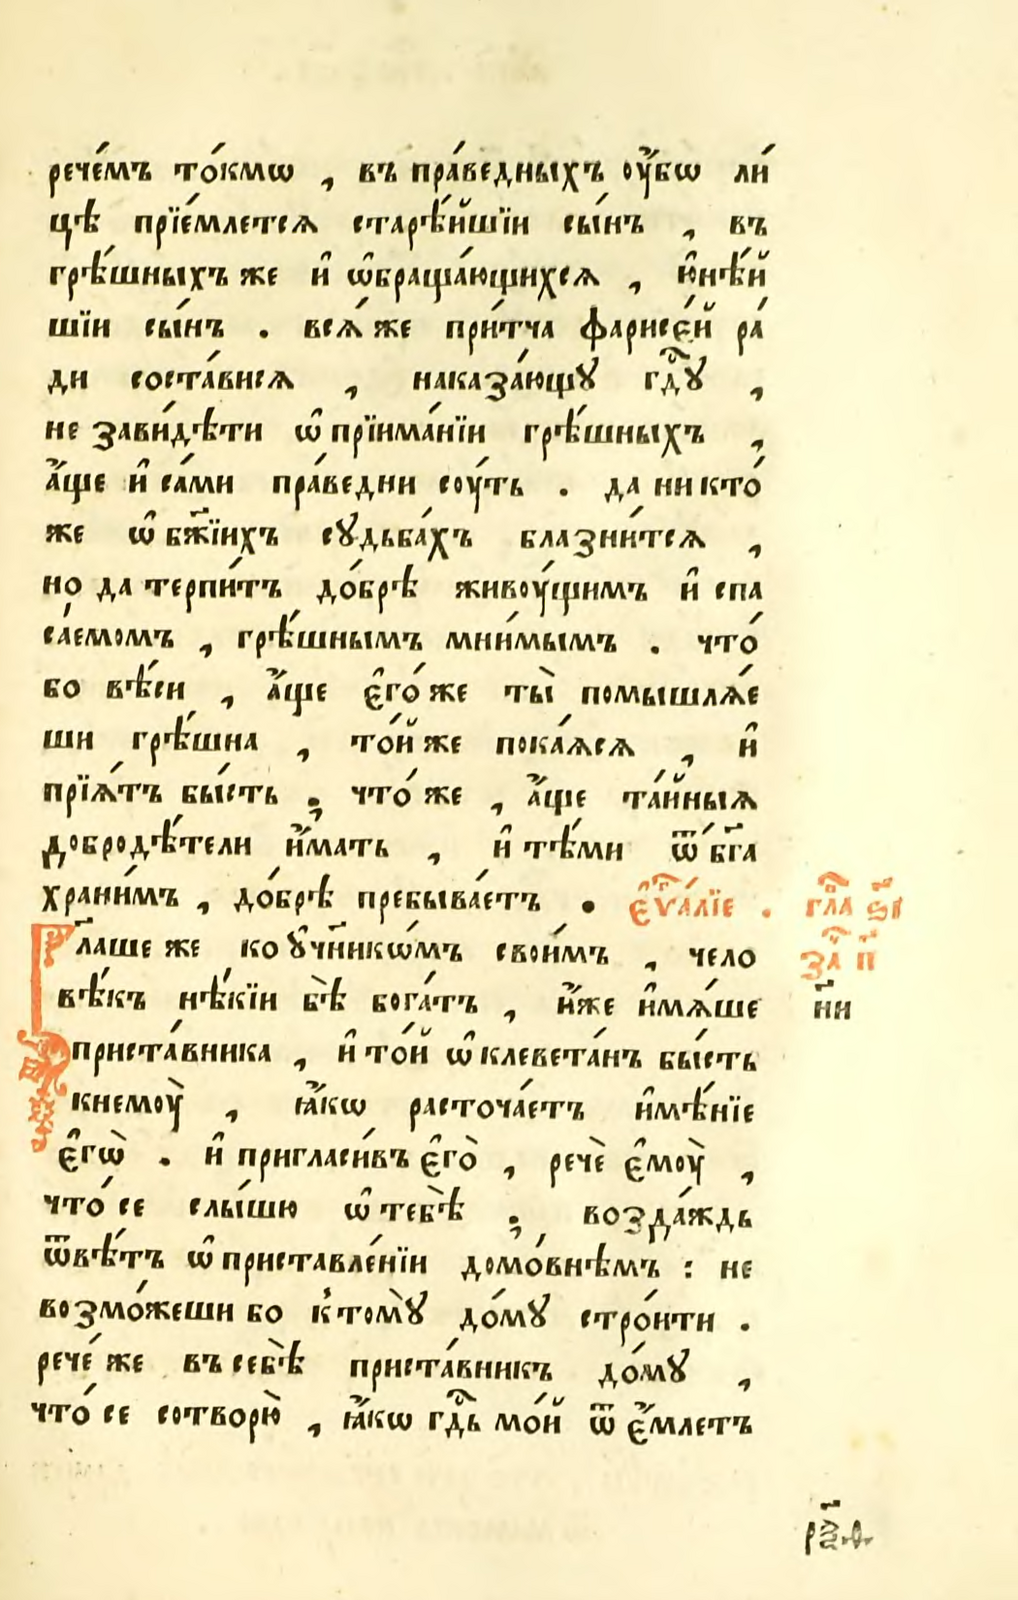 рече́мъ то́кмѡ , въ пра́ведныхъ ᲂу҆́бѡ ли́
цѣ прїе́млетсѧ старѣ́йшїи сы́нъ , въ
грѣ́шныхъ же и҆ ѡ҆браща́ющихсѧ , ю҆нѣ́й
шїи сы́нъ . всѧ́ же при́тча фарисе́й ра́
ди соста́висѧ , наказа́ющꙋ гдⷭ҇ꙋ ,
не зави́дѣти ѡ҆ прїима́нїи грѣ́шныхъ ,
а҆́ще и҆ са́ми пра́ведни соу́ть . да никто́
же ѡ҆ бж҃їихъ сꙋдьба́хъ блазни́тсѧ ,
но да терпи́тъ до́брѣ живоу́щимъ и҆ спа
са́емомъ , грѣ́шнымъ мни́мымъ . что́
бо вѣ́си , а҆́ще є҆го́ же ты̀ помышлѧ́е
ши грѣ́шна , то́й же пока́ѧсѧ , и҆
прїѧ́тъ бы́сть ; что́ же , а҆́ще та́йныѧ
добродѣ́тели и҆́мать , и҆ тѣ́ми ѿ бг҃а
храни́мъ , до́брѣ пребыва́етъ . є҆ѵⷢ҇а́лїе . гл҃а ѕ҃і
Гл҃аше же ко ᲂу҆чн҃икѡ́мъ свои́мъ , чело за҃ п҃
вѣ́къ нѣ́кїи бѣ̀ бога́тъ , и҆́же и҆мѧ́ше н҃и
приста́вника , и҆ то́й ѡ҆клевета́нъ бы́сть
кнемоу̀ , ꙗ҆́кѡ расточа́етъ и҆мѣ́нїе
є҆гѡ̀ . и҆ пригласи́въ є҆го̀ , речѐ є҆моу̀ ,
что́ се слы́шю ѡ҆ тебѣ̀ ; возда́ждь
ѿвѣ́тъ ѡ҆ приставле́нїи домо́внѣмъ : не
возмо́жеши бо к̾ томꙋ̀ до́мꙋ стро́ити .
рече́ же въ себѣ̀ приста́вникъ до́мꙋ ,
что́ се сотворю̀ , ꙗ҆́кѡ гдⷭ҇ь мо́й ѿ є҆́млетъ
рѯ҃ѳ